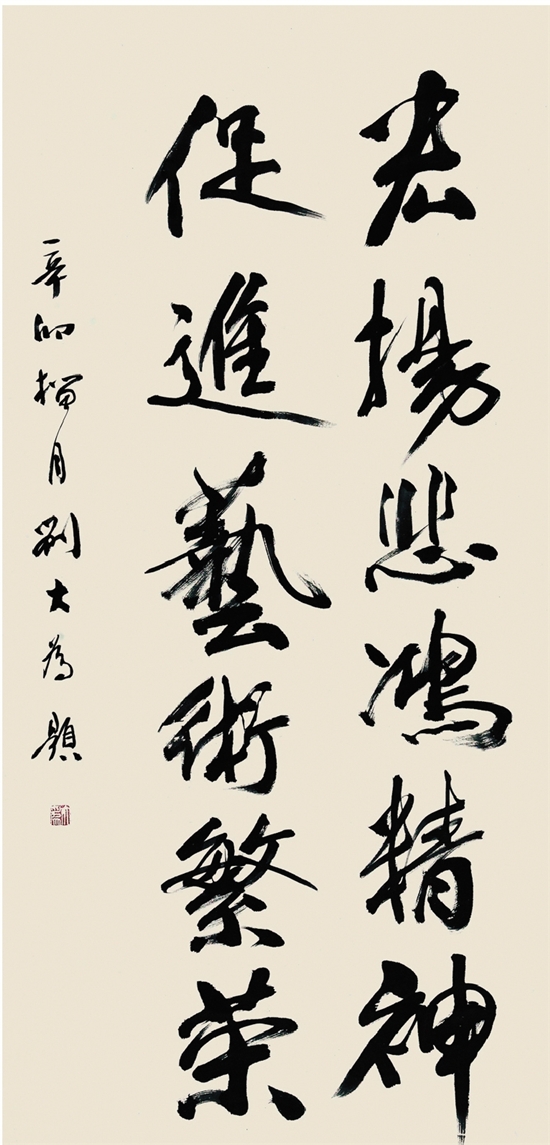 宏揚悲鴻精神
促進藝術繁荣
辛卯榴月劉大為題